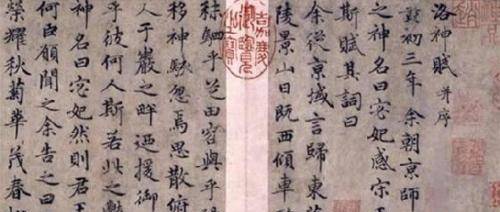 洛神賦 并序
黃初三年余朝京師
之神名曰宓妃感宋
斯賦其詞曰
余從京域言歸東
陵景山日既西傾車
秣駟乎芝田容與乎
移神駭忽焉思散俯
人于巖之畔迺援御
乎彼何人斯若此之艷
神名曰宓妃然則君王
何臼願聞之余告之曰
榮耀秋菊華茂春松
嘉慶御覽之寶